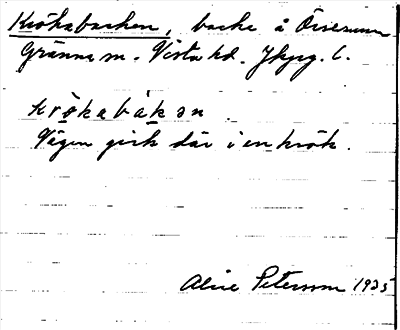 Krökabacken, backe å Örserum
Gränna sn. Vista hd. Jkpg. l.
krökabakən
Vägen gick där i en krök.
Alice Peterson 1935